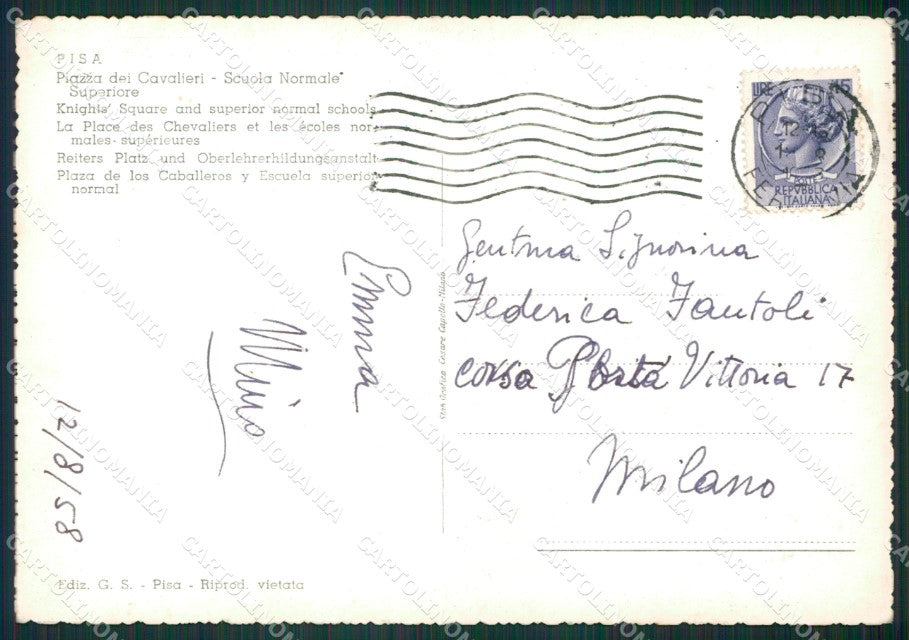 PISA
Piazza dei Cavalieri - Scuola Normale
Superiore
Knights' Square and superior normal schools
La Place des Chevaliers et les écoles nor-
males supérieures
Reiters Platz und Oberlehrerhildungsanstalt
Plaza de los Caballeros y Escuela superior
normal
LIRE 15
REPVBBLICA
ITALIANA
Gent.ma Signorina
Federica Fantoli
corso Porta Vittoria 17
Milano
Emma
Mino
12/8/58
Stab. Grafico Cesare Capello-Milano
Ediz. G. S. - Pisa - Riprod. vietata
CARTOLINOMANIA